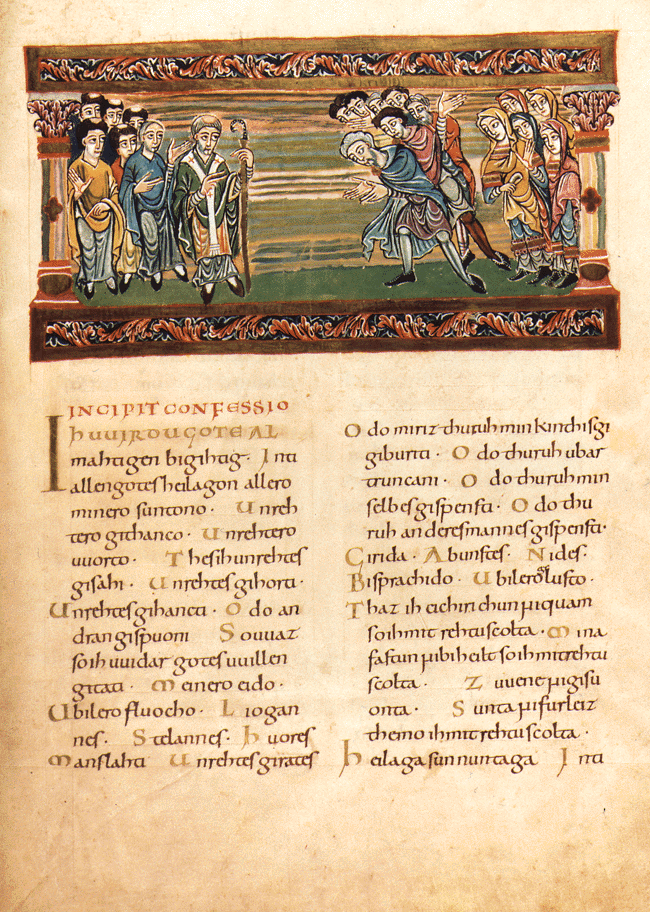 INCIPIT CONFESSIO
IH UUIRDU GOTE AL
mahtigen bigihtig. Inti
allen gotes heilagon allero
minero suntono. Unreh
tero githanco. Unrehtero
uuorto. Thes ih unrehtes
gisahi. Unrehtes gihorti.
Unrehtes gihancti. Odo an
dran gispuoni. So uuaz
so ih uuidar gotes uuillen
gitati. Meinero eido.
Ubilero fluocho. Liogan
nes. Stelannes. Huores
Manslahti. Unrehtes girates
Odo miriz thuruh min kindisgi
giburiti. Odo thuruh ubar
truncani. Odo thuruh min
selbes gispensti. Odo thu
ruh anderes mannes gispensti.
Girida. Abunstes. Nides.
Bisprachido. Ubilero gilusto.
Thaz ih ci chirichun ni quam
so ih mit rehtu scolta. Mina
fastun ni bihielt so ih mit rehtu
scolta. Zuuene ni gisu
onta. Sunta ni furliez
themo ih mit rehtu scolta.
Heilaga sunnuntaga Inti